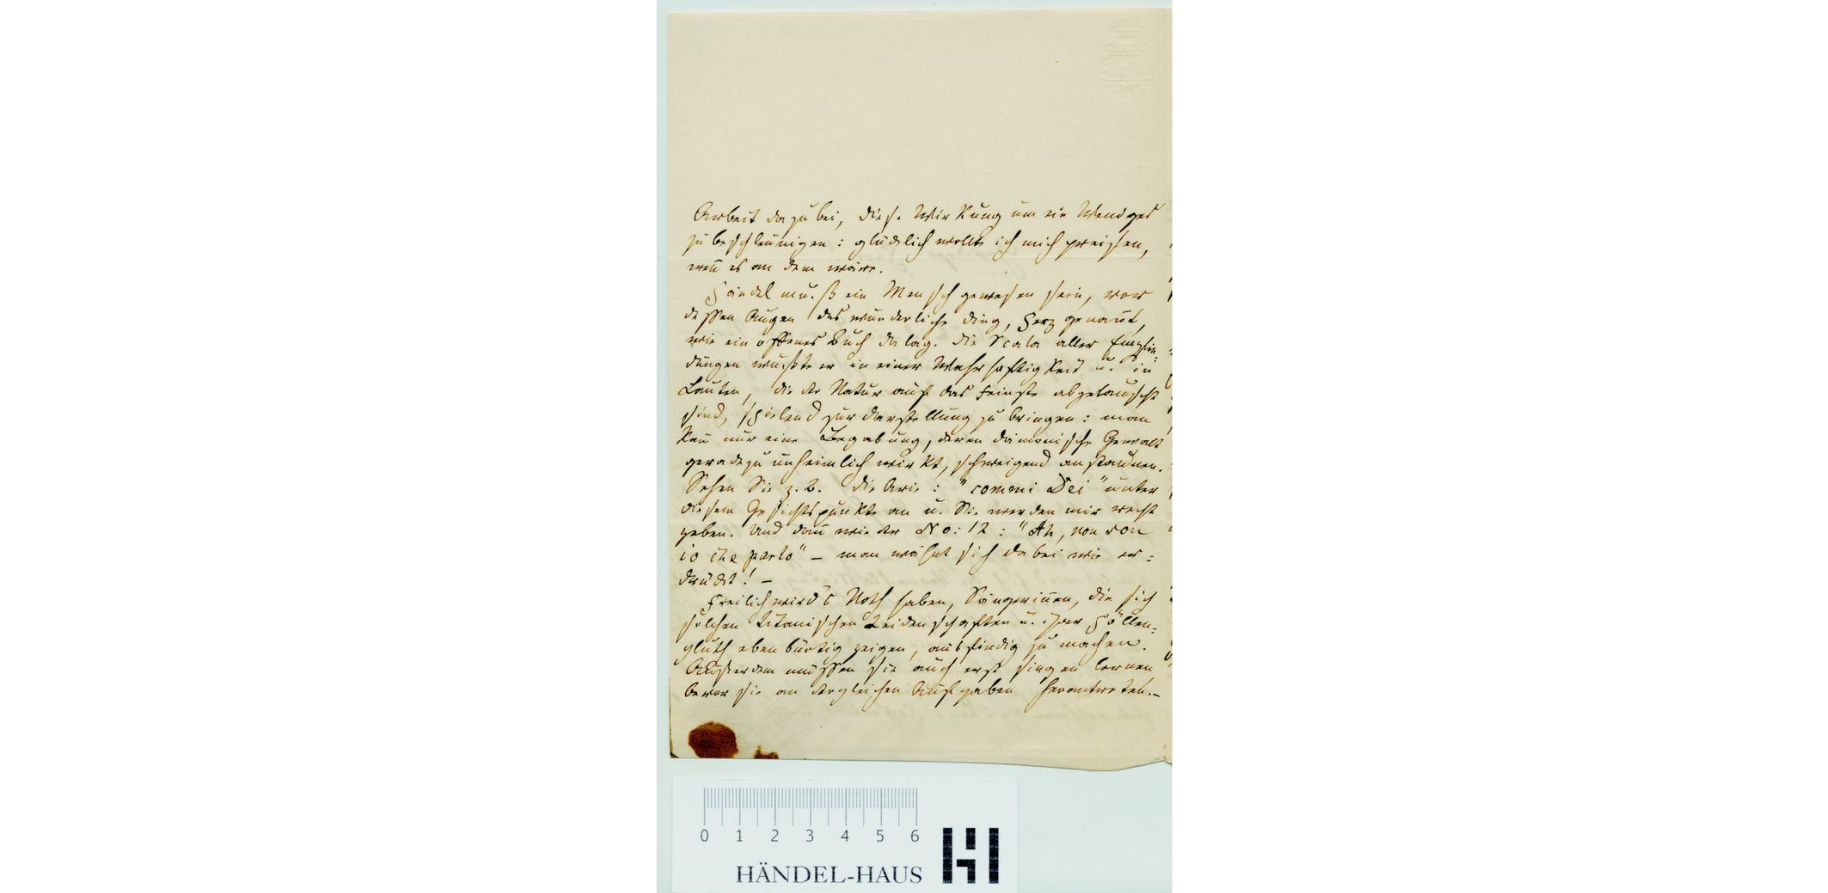 Arbeit dazu bei, diese Wirkung um ein Weniges
zu beschleunigen: glücklich wollte ich mich preisen,
wen̄ es an dem wäre.
Händel muß ein Mensch gewesen sein, vor
dessen Augen das wunderliche Ding, Herz genan̄t,
wie ein offenes Buch dalag. Die Scala aller Empfin-
dungen wußte er in einer Wahrhaftigkeit u. in
Lauten, die der Natur auf das Feinste abgelauscht
sind, spielend zur Darstellung zu bringen: man
kan̄ nur eine Begabung, deren dämonische Gewalt
geradezu unheimlich wirkt, schweigend anstaunen.
Sehen Sie z. B. die Arie: "commi Dei" unter
diesem Gesichtspunkte an u. Sie werden mir recht
geben. Und dan̄ wieder No: 12: "Ah, non son
io che parlo" – man wähnt sich dabei wie er-
drückt! –
Freilich wird's Noth haben, Sängerin̄en, die sich
solchen titanischen Leidenschaften u. ihrer Höllen-
gluth ebenbürtig zeigen, ausfindig zu machen.
Außerdem müssen sie auch erst singen lernen
bevor sie an dergleichen Aufgaben herantreten. –
0 1 2 3 4 5 6
HÄNDEL-HAUS